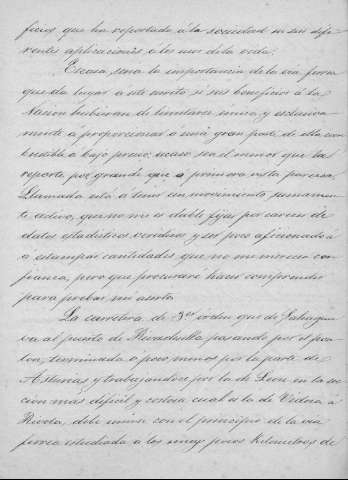 ficios que ha reportado á la sociedad en sus dife-
rentes aplicaciones a los usos de la vida.
Escasa seria la importancia de la via ferrea
que da lugar a este escrito si sus beneficios á la
Nacion hubieran de limitarse única y esclusiva-
mente a proporcionar a una gran parte de ella com-
bustible á bajo precio; acaso sea el menor que la
reporte por grande que a primera vista parezca.
Llamada está á tener un movimiento sumamen-
te activo, que no me es dable fijar por carecer de
datos estadisticos verídicos y ser poco aficionado á
a estampar cantidades que no me merecen con-
fianza, pero que procuraré hacer comprender
para probar mi aserto.
La carretera de 3er orden que de Sahagun
va al puerto de Rivadesella pasando por el
terminada o poco menos por la parte de
Asturias y trabajandose por la de Leon en la sec-
cion más dificil y costosa cual es la de
á
debe unirse con el principio de la via
ferrea estudiada a los muy pocos kilometros de